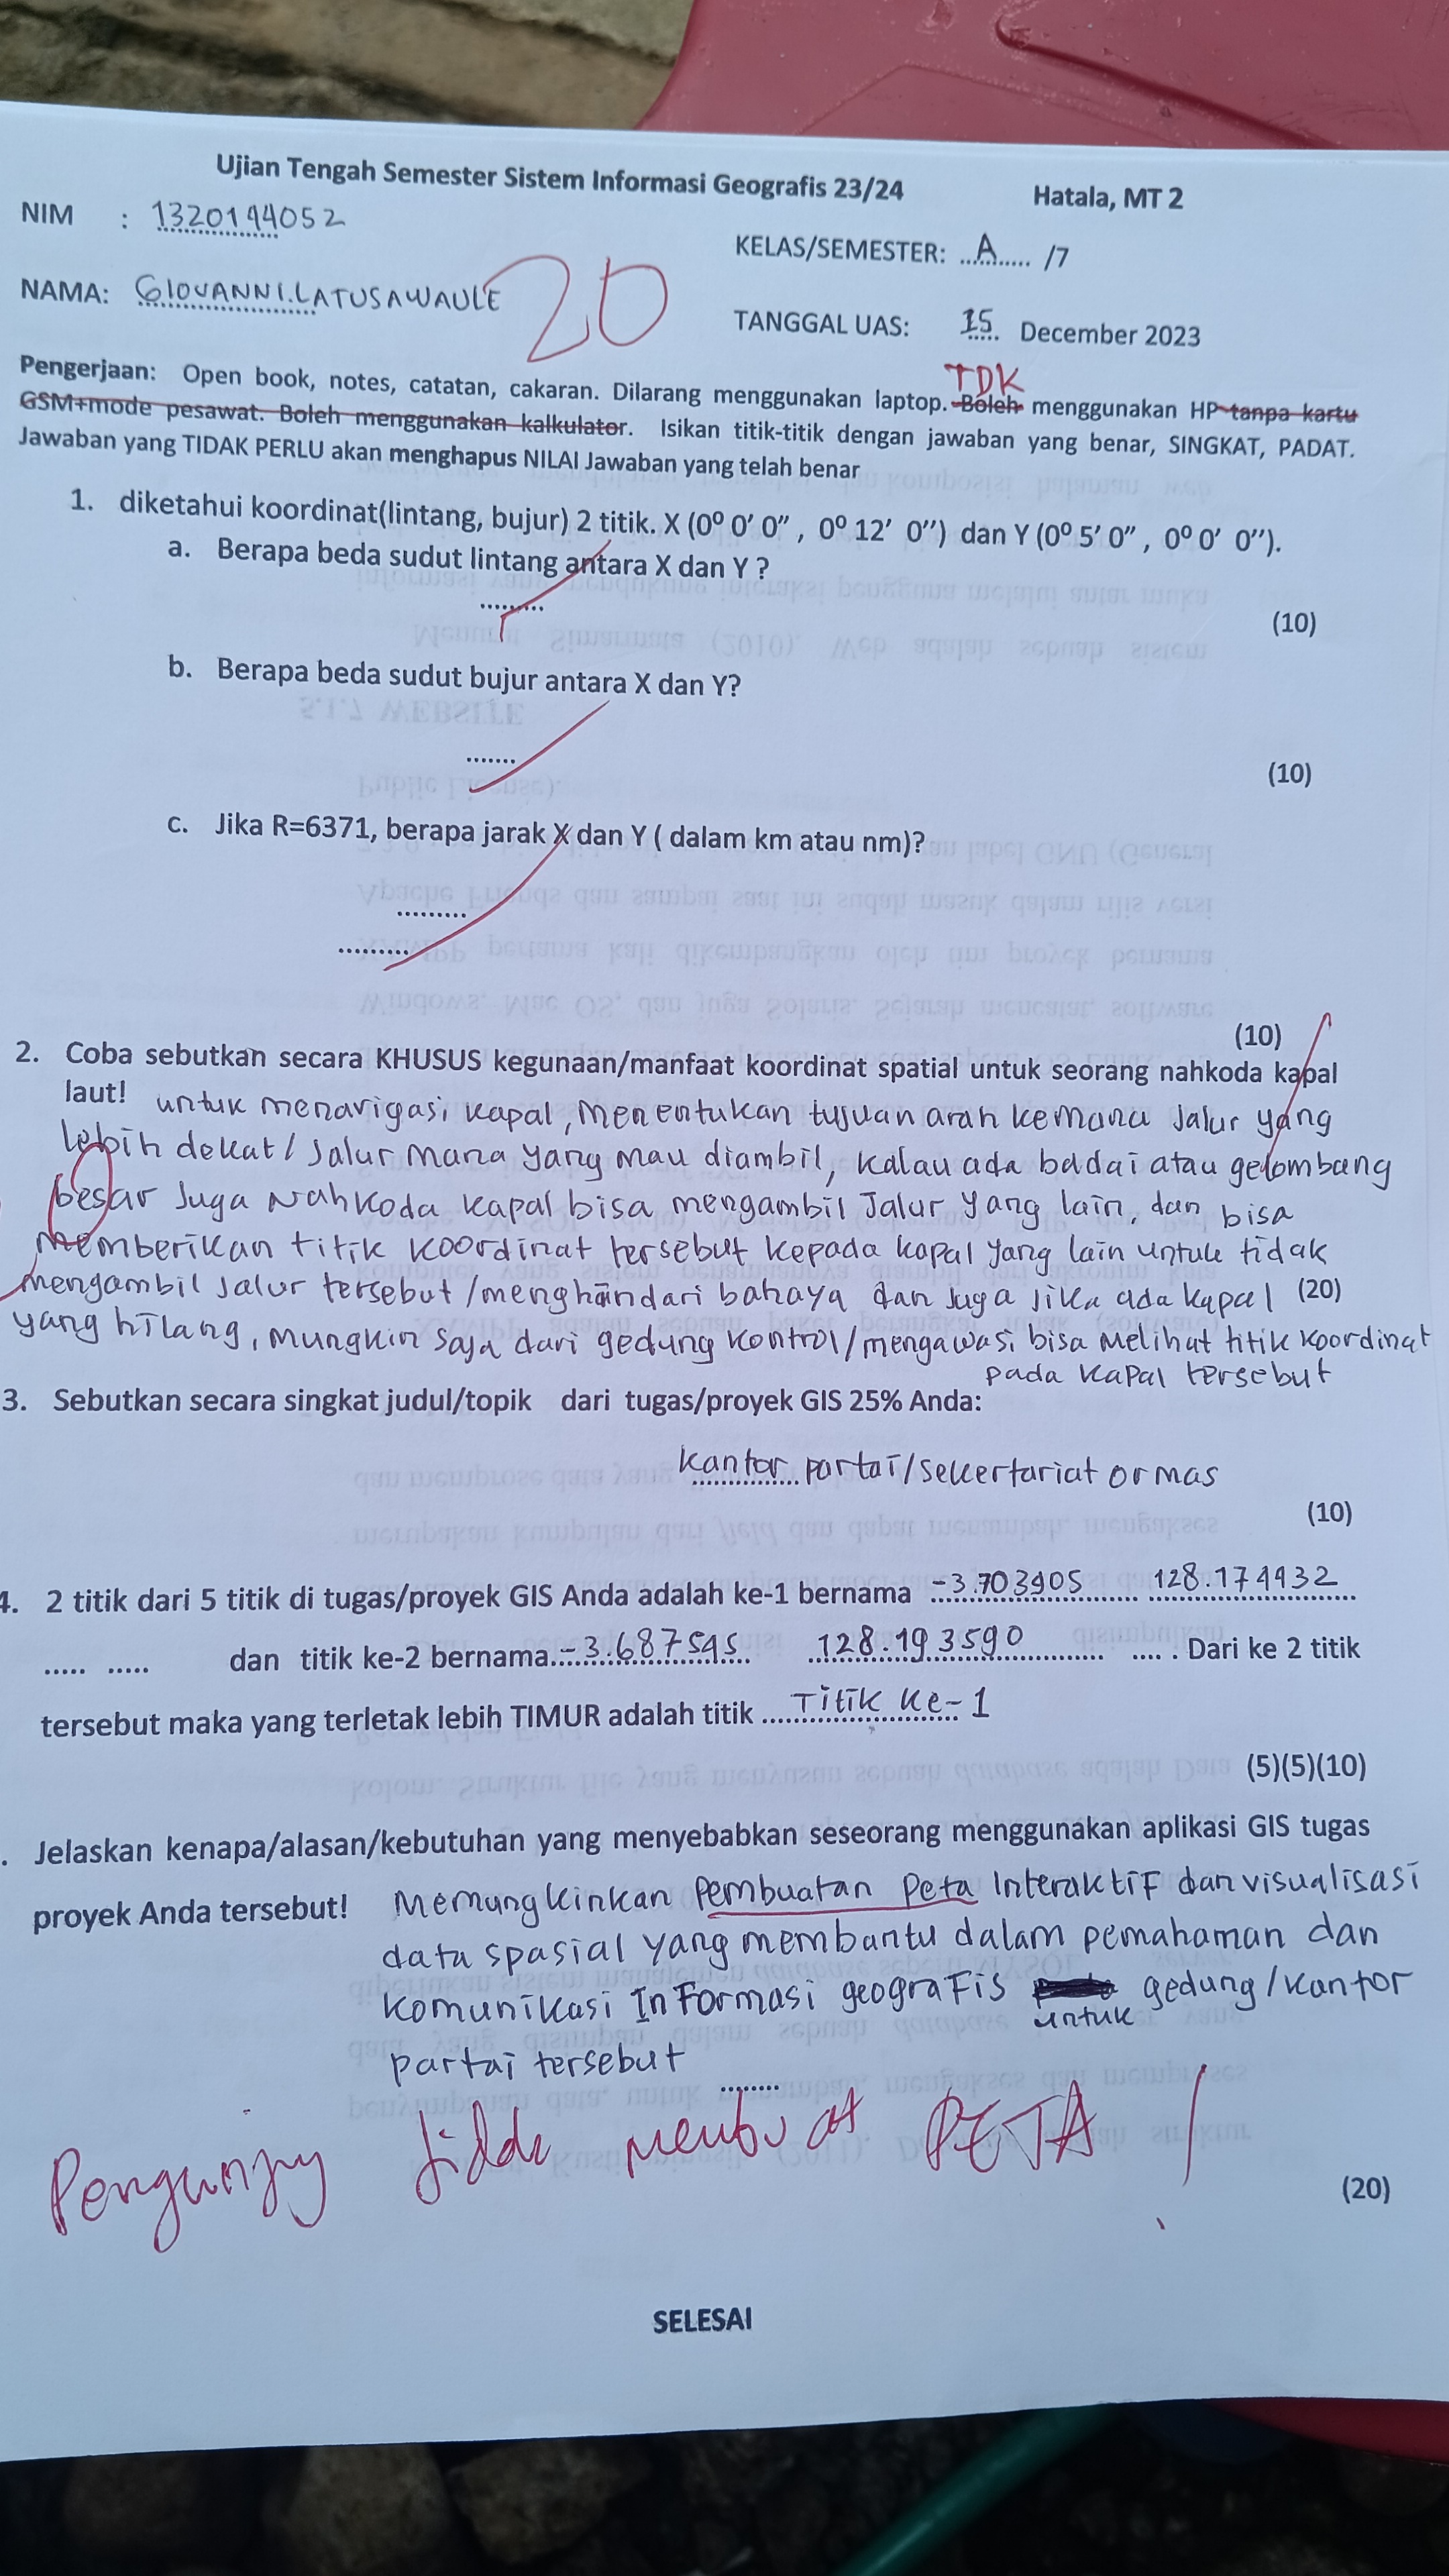 Ujian Tengah Semester Sistem Informasi Geografis 23/24 Hatala, MT 2
NIM : 1320194052
KELAS/SEMESTER: ...A...... /7
NAMA: GIOVANNI.LATUSAWAULE
20
TANGGAL UAS: 15 December 2023
TDK
Pengerjaan: Open book, notes, catatan, cakaran. Dilarang menggunakan laptop. Boleh menggunakan HP tanpa kartu
GSM+mode pesawat. Boleh menggunakan kalkulator. Isikan titik-titik dengan jawaban yang benar, SINGKAT, PADAT.
Jawaban yang TIDAK PERLU akan menghapus NILAI Jawaban yang telah benar
1. diketahui koordinat(lintang, bujur) 2 titik. X (0⁰ 0’ 0” , 0⁰ 12’ 0’’) dan Y (0⁰ 5’ 0” , 0⁰ 0’ 0’’).
a. Berapa beda sudut lintang antara X dan Y ?
.........
(10)
b. Berapa beda sudut bujur antara X dan Y?
.......
(10)
c. Jika R=6371, berapa jarak X dan Y ( dalam km atau nm)?
.........
.........
(10)
2. Coba sebutkan secara KHUSUS kegunaan/manfaat koordinat spatial untuk seorang nahkoda kapal
laut! untuk menavigasi kapal, menentukan tujuan arah kemana Jalur yang
lebih dekat / Jalur mana yang mau diambil, kalau ada badai atau gelombang
besar Juga Nahkoda kapal bisa mengambil Jalur yang lain, dan bisa
memberikan titik koordinat tersebut kepada kapal yang lain untuk tidak
mengambil Jalur tersebut / menghindari bahaya dan Juga Jika ada kapal (20)
yang hilang, mungkin saja dari gedung kontrol/mengawasi bisa melihat titik koordinat
pada kapal tersebut
3. Sebutkan secara singkat judul/topik dari tugas/proyek GIS 25% Anda:
kantor partai/sekertariat ormas
(10)
4. 2 titik dari 5 titik di tugas/proyek GIS Anda adalah ke-1 bernama -3.703905 128.174932
..... ..... dan titik ke-2 bernama -3.687595 128.193590 .... . Dari ke 2 titik
tersebut maka yang terletak lebih TIMUR adalah titik Titik ke-1
(5)(5)(10)
. Jelaskan kenapa/alasan/kebutuhan yang menyebabkan seseorang menggunakan aplikasi GIS tugas
proyek Anda tersebut! Memungkinkan Pembuatan Peta Interaktif dan visualisasi
data spasial yang membantu dalam pemahaman dan
komunikasi Informasi geografis untuk gedung/kantor
partai tersebut
........
Pengunjung tidak membuat PETA !
(20)
SELESAI